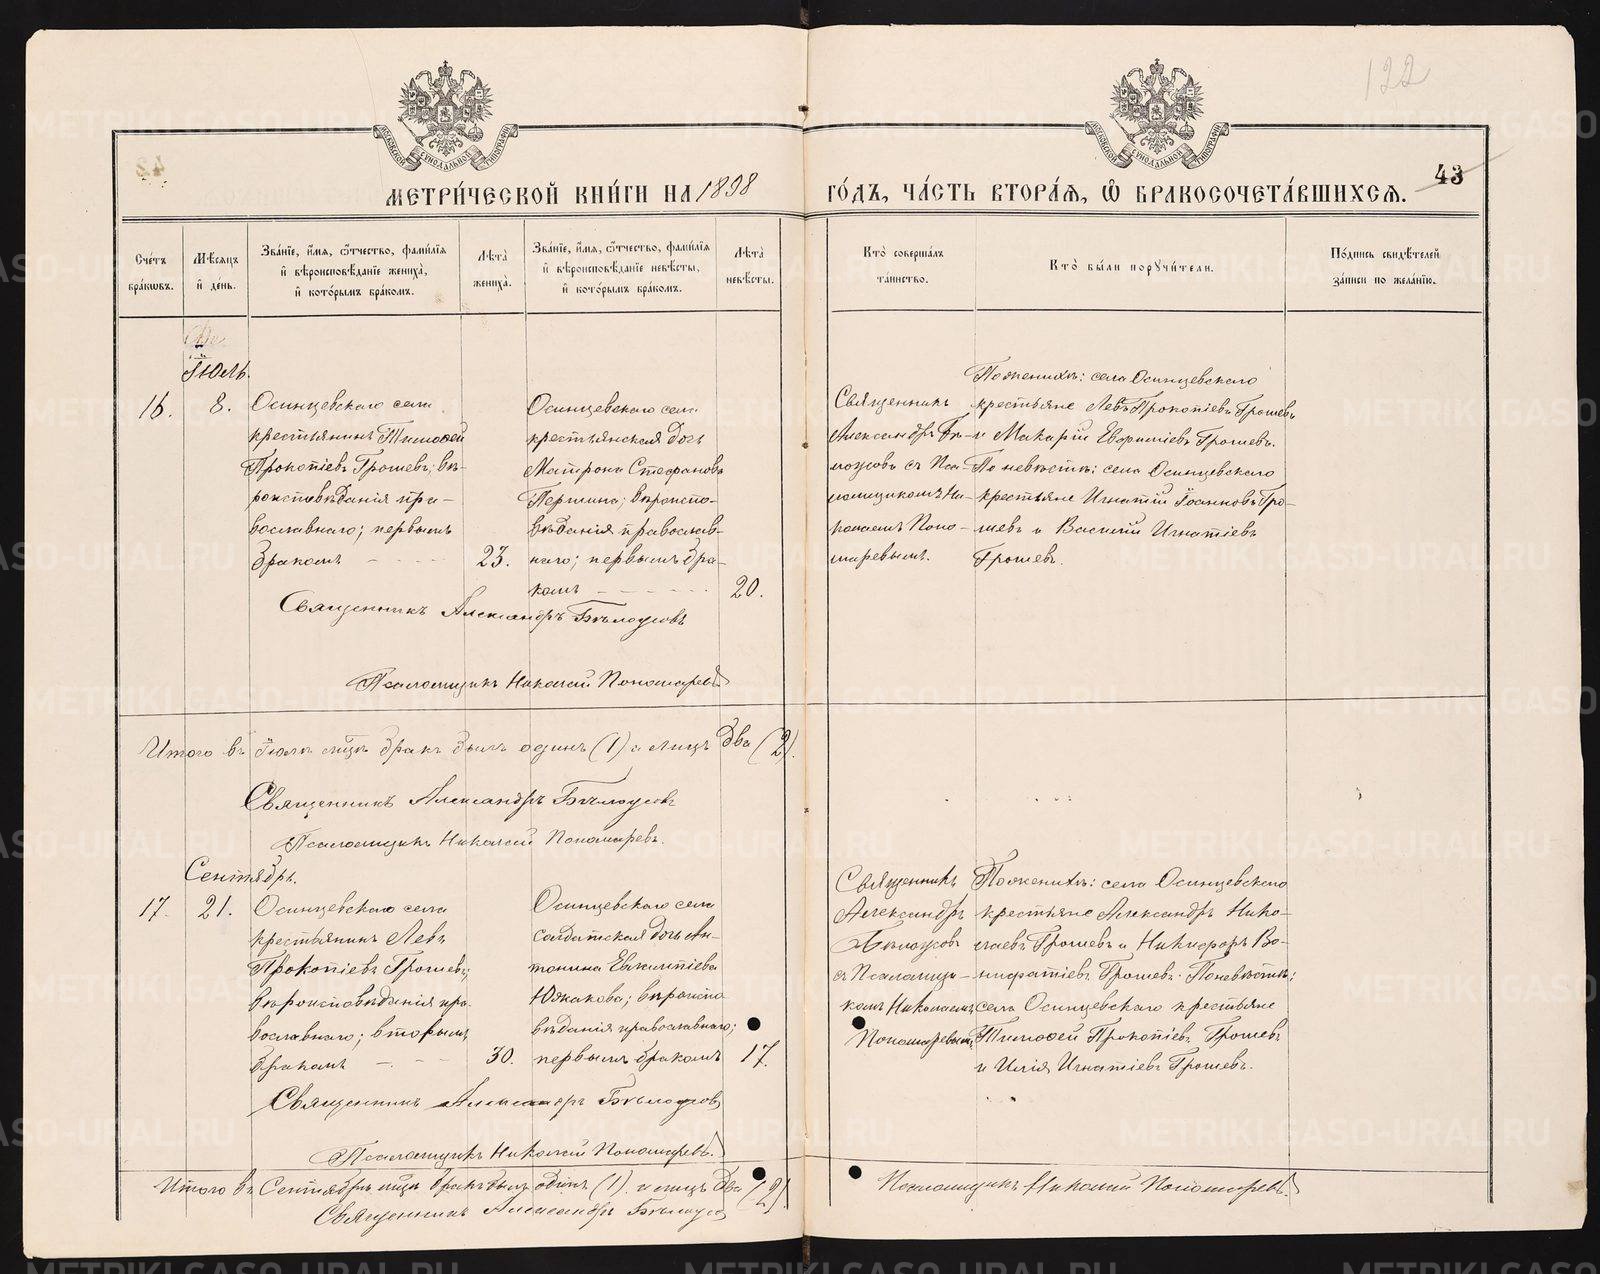 122
43
МЕТРИ́ЧЕСКОЙ КНИ́ГИ НА 1898 ГО́ДЪ, ЧА́СТЬ ВТОРА́Я, Ѡ БРАКОСОЧЕТА́ВШИХСЯ.
Сче́тъ бра́кѡвъ.
Мѣ́сяцъ и́ день.
Зва́нїе, и́мя, ѻ҆́тчество, фами́лїя и҆ вѣроисповѣ́данїе жениха̀, и҆ кото́рымъ бра́комъ.
Лѣта̀ жениха̀.
Зва́нїе, и́мя, ѻ҆́тчество, фами́лїя и҆ вѣроисповѣ́данїе невѣ́сты, и҆ кото́рымъ бра́комъ.
Лѣта̀ невѣ́сты.
Кто̀ соверша́лъ та́инство.
Кто̀ бы́ли порꙋчи́тели.
По́дпись свидѣ́телей за́писи по жела́нїю.
Іюль.
16.
8.
Осинцевскаго села
крестьянинъ Тимоѳей
Прокопіевъ Грошевъ; вѣ-
роисповѣданія пра-
вославнаго; первымъ
бракомъ
23.
Осинцевскаго села
крестьянская дочь
Матрона Стефановна
Першина; вѣроиспо-
вѣданія православ-
наго; первымъ бра-
комъ
20.
Священникъ
Александръ Бѣ-
лоусовъ съ Пса-
ломщикомъ Ни-
колаемъ Поно-
маревымъ.
По женихѣ: села Осинцевскаго
крестьяне Левъ Прокопіевъ Грошевъ
и Макарій Грошевъ.
По невѣстѣ: села Осинцевскаго
крестьяне Игнатій Іоанновъ Гро-
шевъ и Василій Игнатіевъ
Грошевъ.
Священникъ Александръ Бѣлоусовъ
Псаломщикъ Николай Пономаревъ
Итого въ Іюлѣ мѣсяцѣ бракъ былъ одинъ (1) а лицъ два (2).
Священникъ Александръ Бѣлоусовъ
Псаломщикъ Николай Пономаревъ.
Сентябрь.
17.
21.
Осинцевскаго села
крестьянинъ Левъ
Прокопіевъ Грошевъ;
вѣроисповѣданія пра-
вославнаго; вторымъ
бракомъ
30.
Осинцевскаго села
солдатская дочь Ан-
тонина
Южакова; вѣроиспо-
вѣданія православнаго;
первымъ бракомъ
17.
Священникъ
Александръ
Бѣлоусовъ
съ Псаломщи-
комъ Николаемъ
Пономаревымъ.
По женихѣ: села Осинцевскаго
крестьяне Александръ Нико-
лаевъ Грошевъ и Никифоръ Во-
нифатіевъ Грошевъ. По невѣстѣ:
села Осинцевскаго крестьяне
Тимоѳей Прокопіевъ Грошевъ
и Илія Игнатіевъ Грошевъ.
Священникъ Александръ Бѣлоусовъ
Псаломщикъ Николай Пономаревъ.
Итого въ Сентябрѣ мѣсяцѣ бракъ былъ одинъ (1) а лицъ два (2).
Священникъ Александръ Бѣлоусовъ
Псаломщикъ Николай Пономаревъ.
METRIKI.GASO-URAL.RU